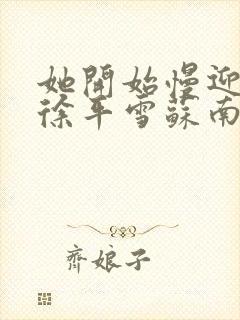 她開始慢迎
徐平雪蘇南
齊娘子